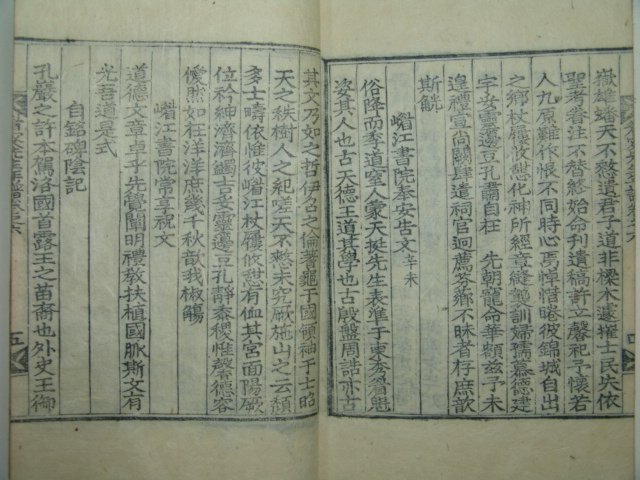 嶽雄蟠天不憗遺君子道非梁木遽摧士民失依
聖考眷注不替終始命刊遺稿許立馨祀予懷若
人九原難作恨不同時心焉悼惜睠彼錦城自出
之鄉杖屨攸憩化神所經章縫塾訓婦孺慕德建
宇妥靈籩豆孔肅自在　先朝寵命華額玆予未
遑禮宣尙稽肆遣祠官迥薦芬薌不昧者存庶歆
斯觥
㟳江書院奉安告文 辛未
俗降而季道窒人蒙天挺先生表準于東
姿其人也古天德王道其學也古殷盤周誥亦古
其文乃如之哲伊名之倫著龜于國領袖于士昭
天之秩樹人之紀嗟天不憗未究厥施山之云頹
多士疇依惟彼㟳江杖屨攸憩有侐其宮面陽厥
位衿紳濟濟蠲吉妥靈籩豆孔靜黍稷惟馨德容
僾然如在洋洋庶幾千秋歆我椒觴
㟳江書院常享祝文
道德文章卓乎先覺闡明禮敎扶植國脈斯文有
光吾道是式
自銘碑陰記
孔巖之許本駕洛國首露王之苗裔也外史王御